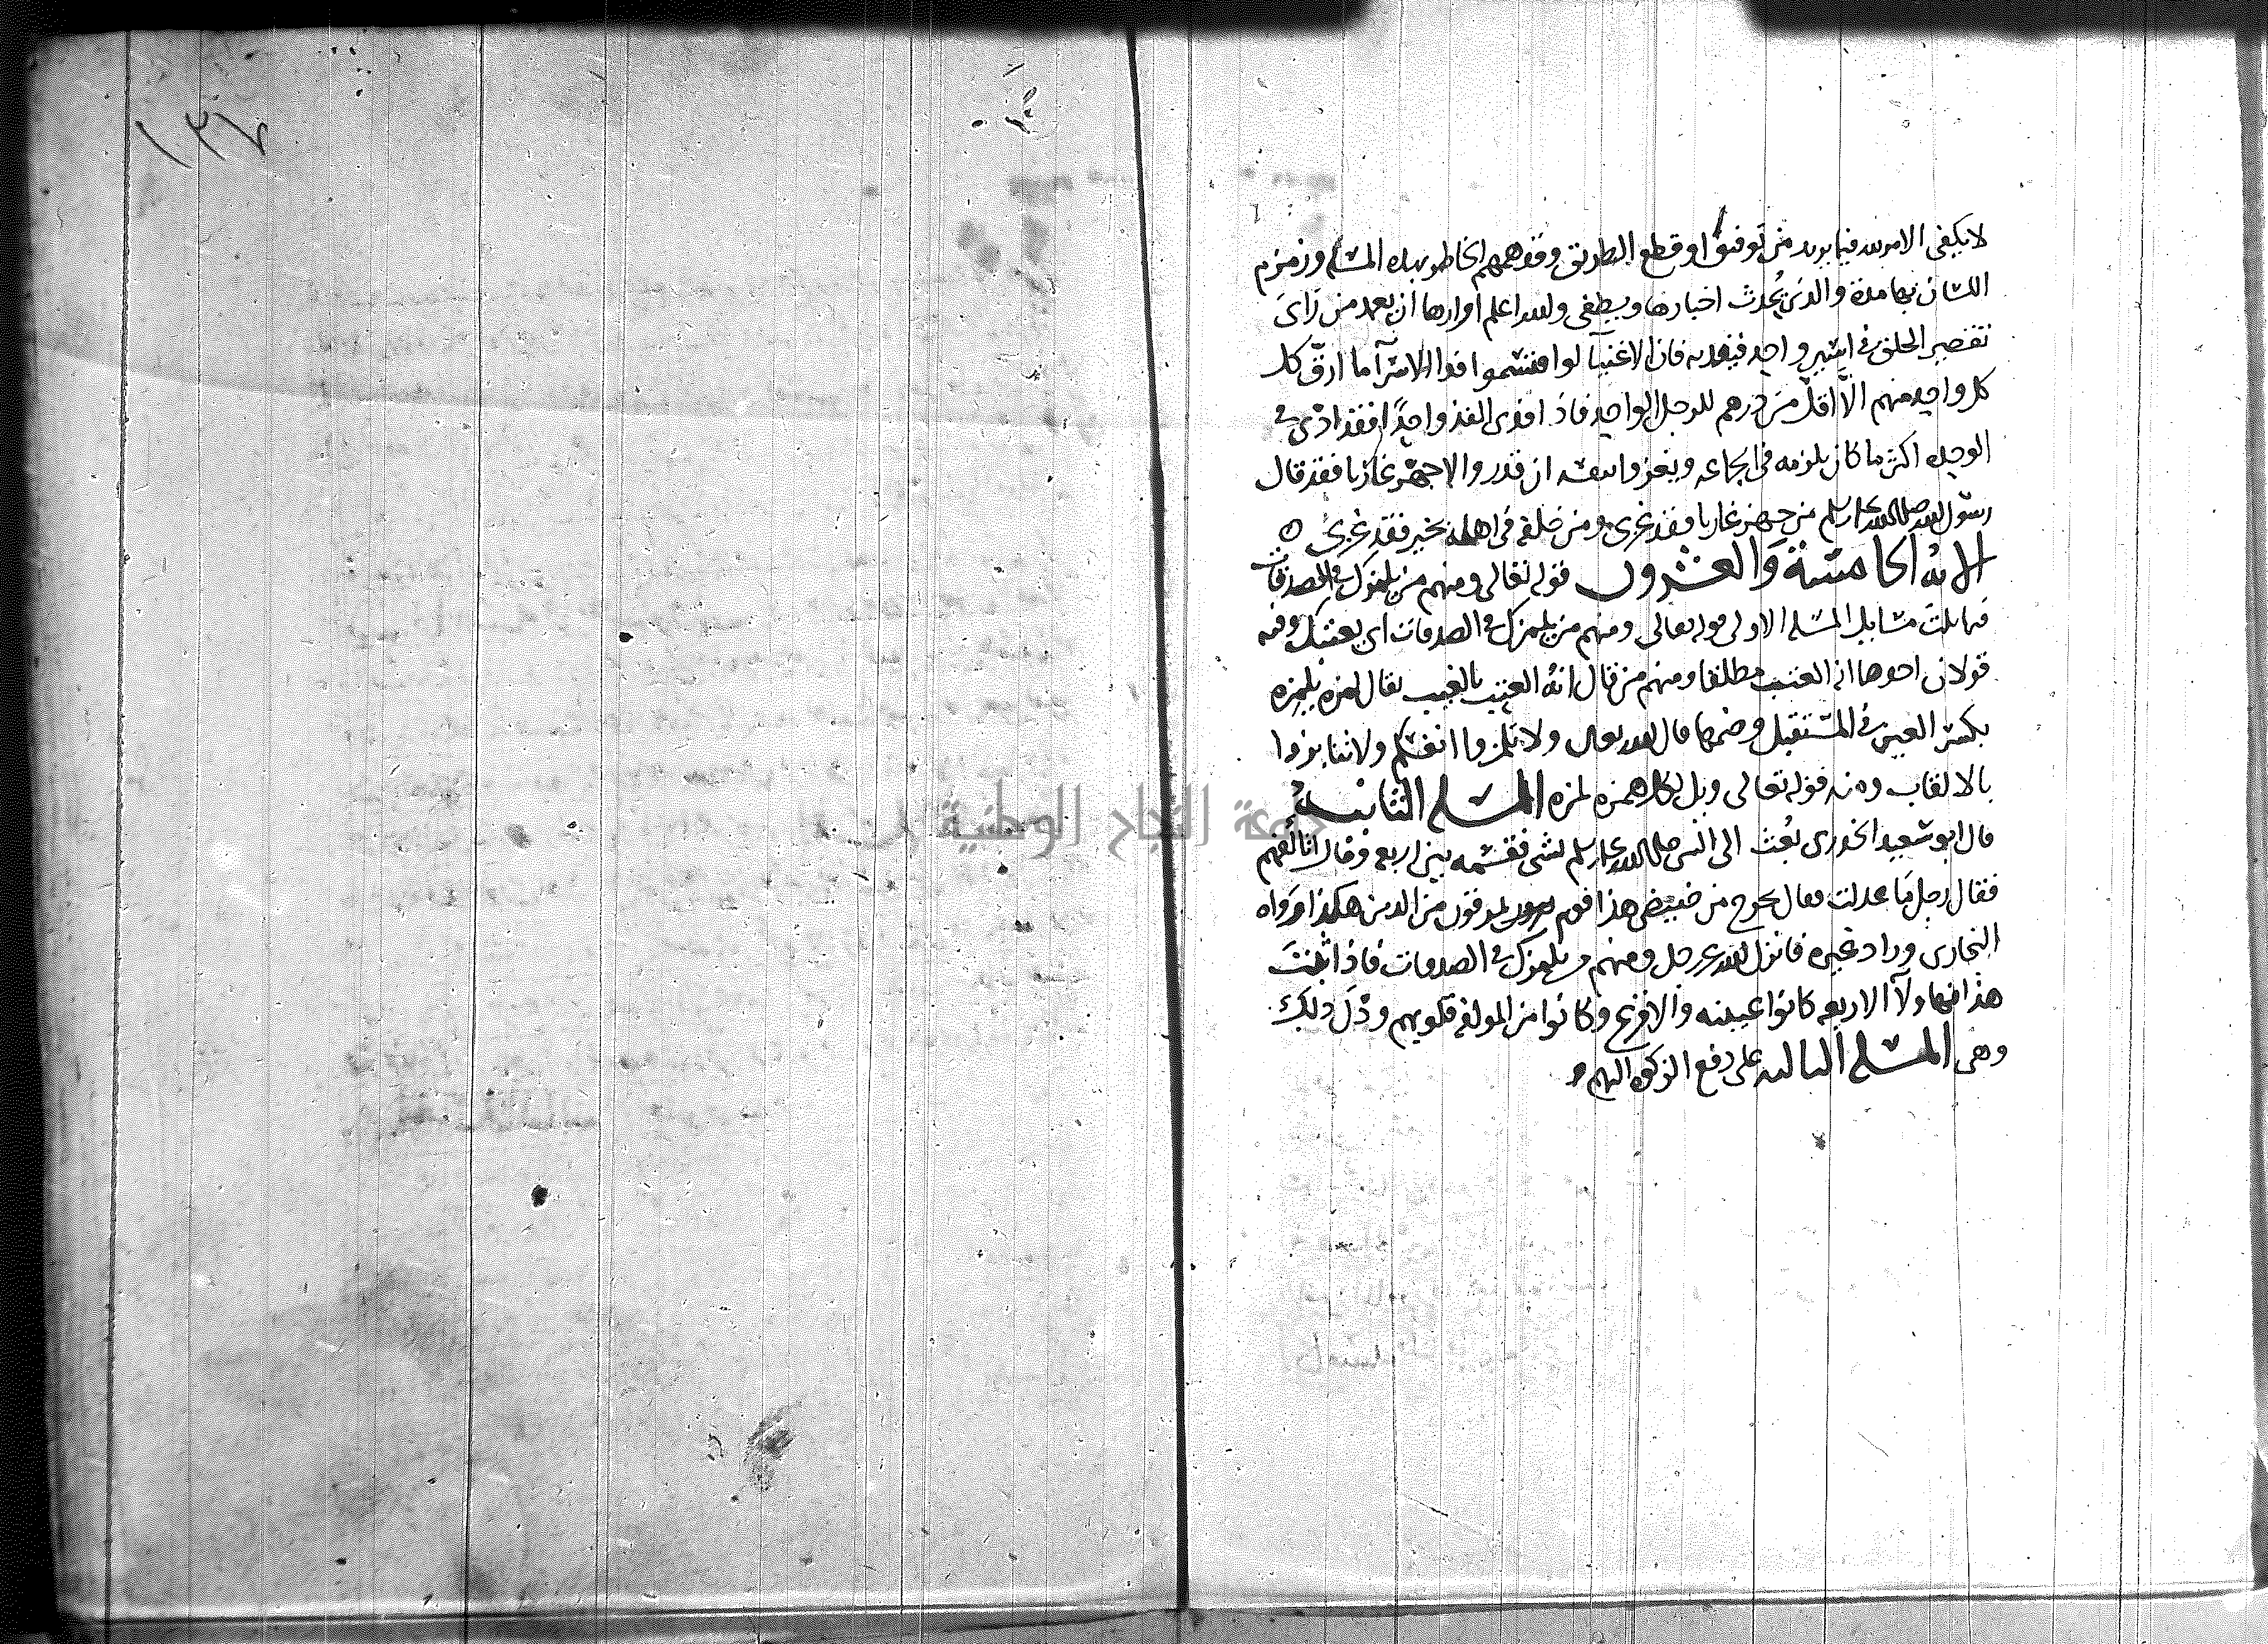 لا يكفى الا بوسه فيما بويد من توفيق او قطع الطريق وقد همهم الخاطر بهذه المسلم وزمزم
اللسان بها مدة والذى يحدث اخبارها ويطفى ولله اعلم اوارها ان يعمد من رأى
تقصير الخلق فى اسير واحد فيفديه فان الاغنيا لو اقتسموا فدا الاسرآ ما ادى كل
كل واحد منهم الا اقل من درهم للرجل الواحد فاذا فدى الفذ واحدا فقد ادى فى
الوحيد اكثر ما كان يلزمه فى الجماعه ويغزوا بنفسه ان قدر والا جهز غازيا فقد قال
رسول الله صلى الله عليه وسلم من جهز غازيا فقد غزى ومن خلفه فى اهله بخير فقد غزى
الايه الخامسة والعشرون قوله تعالى ومنهم من يلمزك فى الصدقات
فيها ثلث مسايل المسله الاولى قوله تعالى ومنهم من يلمزك فى الصدقات اى يعيبك وفيه
قولان احدها انه العيب مطلقا ومنهم من قال انه العيب بالغيب يقال لمزه يلمزه
بكسر العين فى المستقبل وضمها قال الله تعالى ولا تلمزوا انفسكم ولا تنابزوا
بالالقاب ومنه قوله تعالى ويل لكل همزه لمزه المسله الثانيه
قال ابو سعيد الخدرى بعث الى النبى صلى الله عليه وسلم بشى فقسمه بين اربعه وقال اتالفهم
فقال رجل ما عدلت فقال يخرج من ضيضى هذا قوم يمرقون من الدين هكذا رواه
البخارى وزاد غيره فانزل الله عز وجل ومنهم من يلمزك فى الصدقات فاذا ثبت
هذا فهاولآ الاربعه كانوا عيينه والاقرع وكانوا من المولفة قلوبهم ودل ذلك
وهى المسله الثالثه على دفع الزكوه اليهم
جامعة النجاح الوطنية